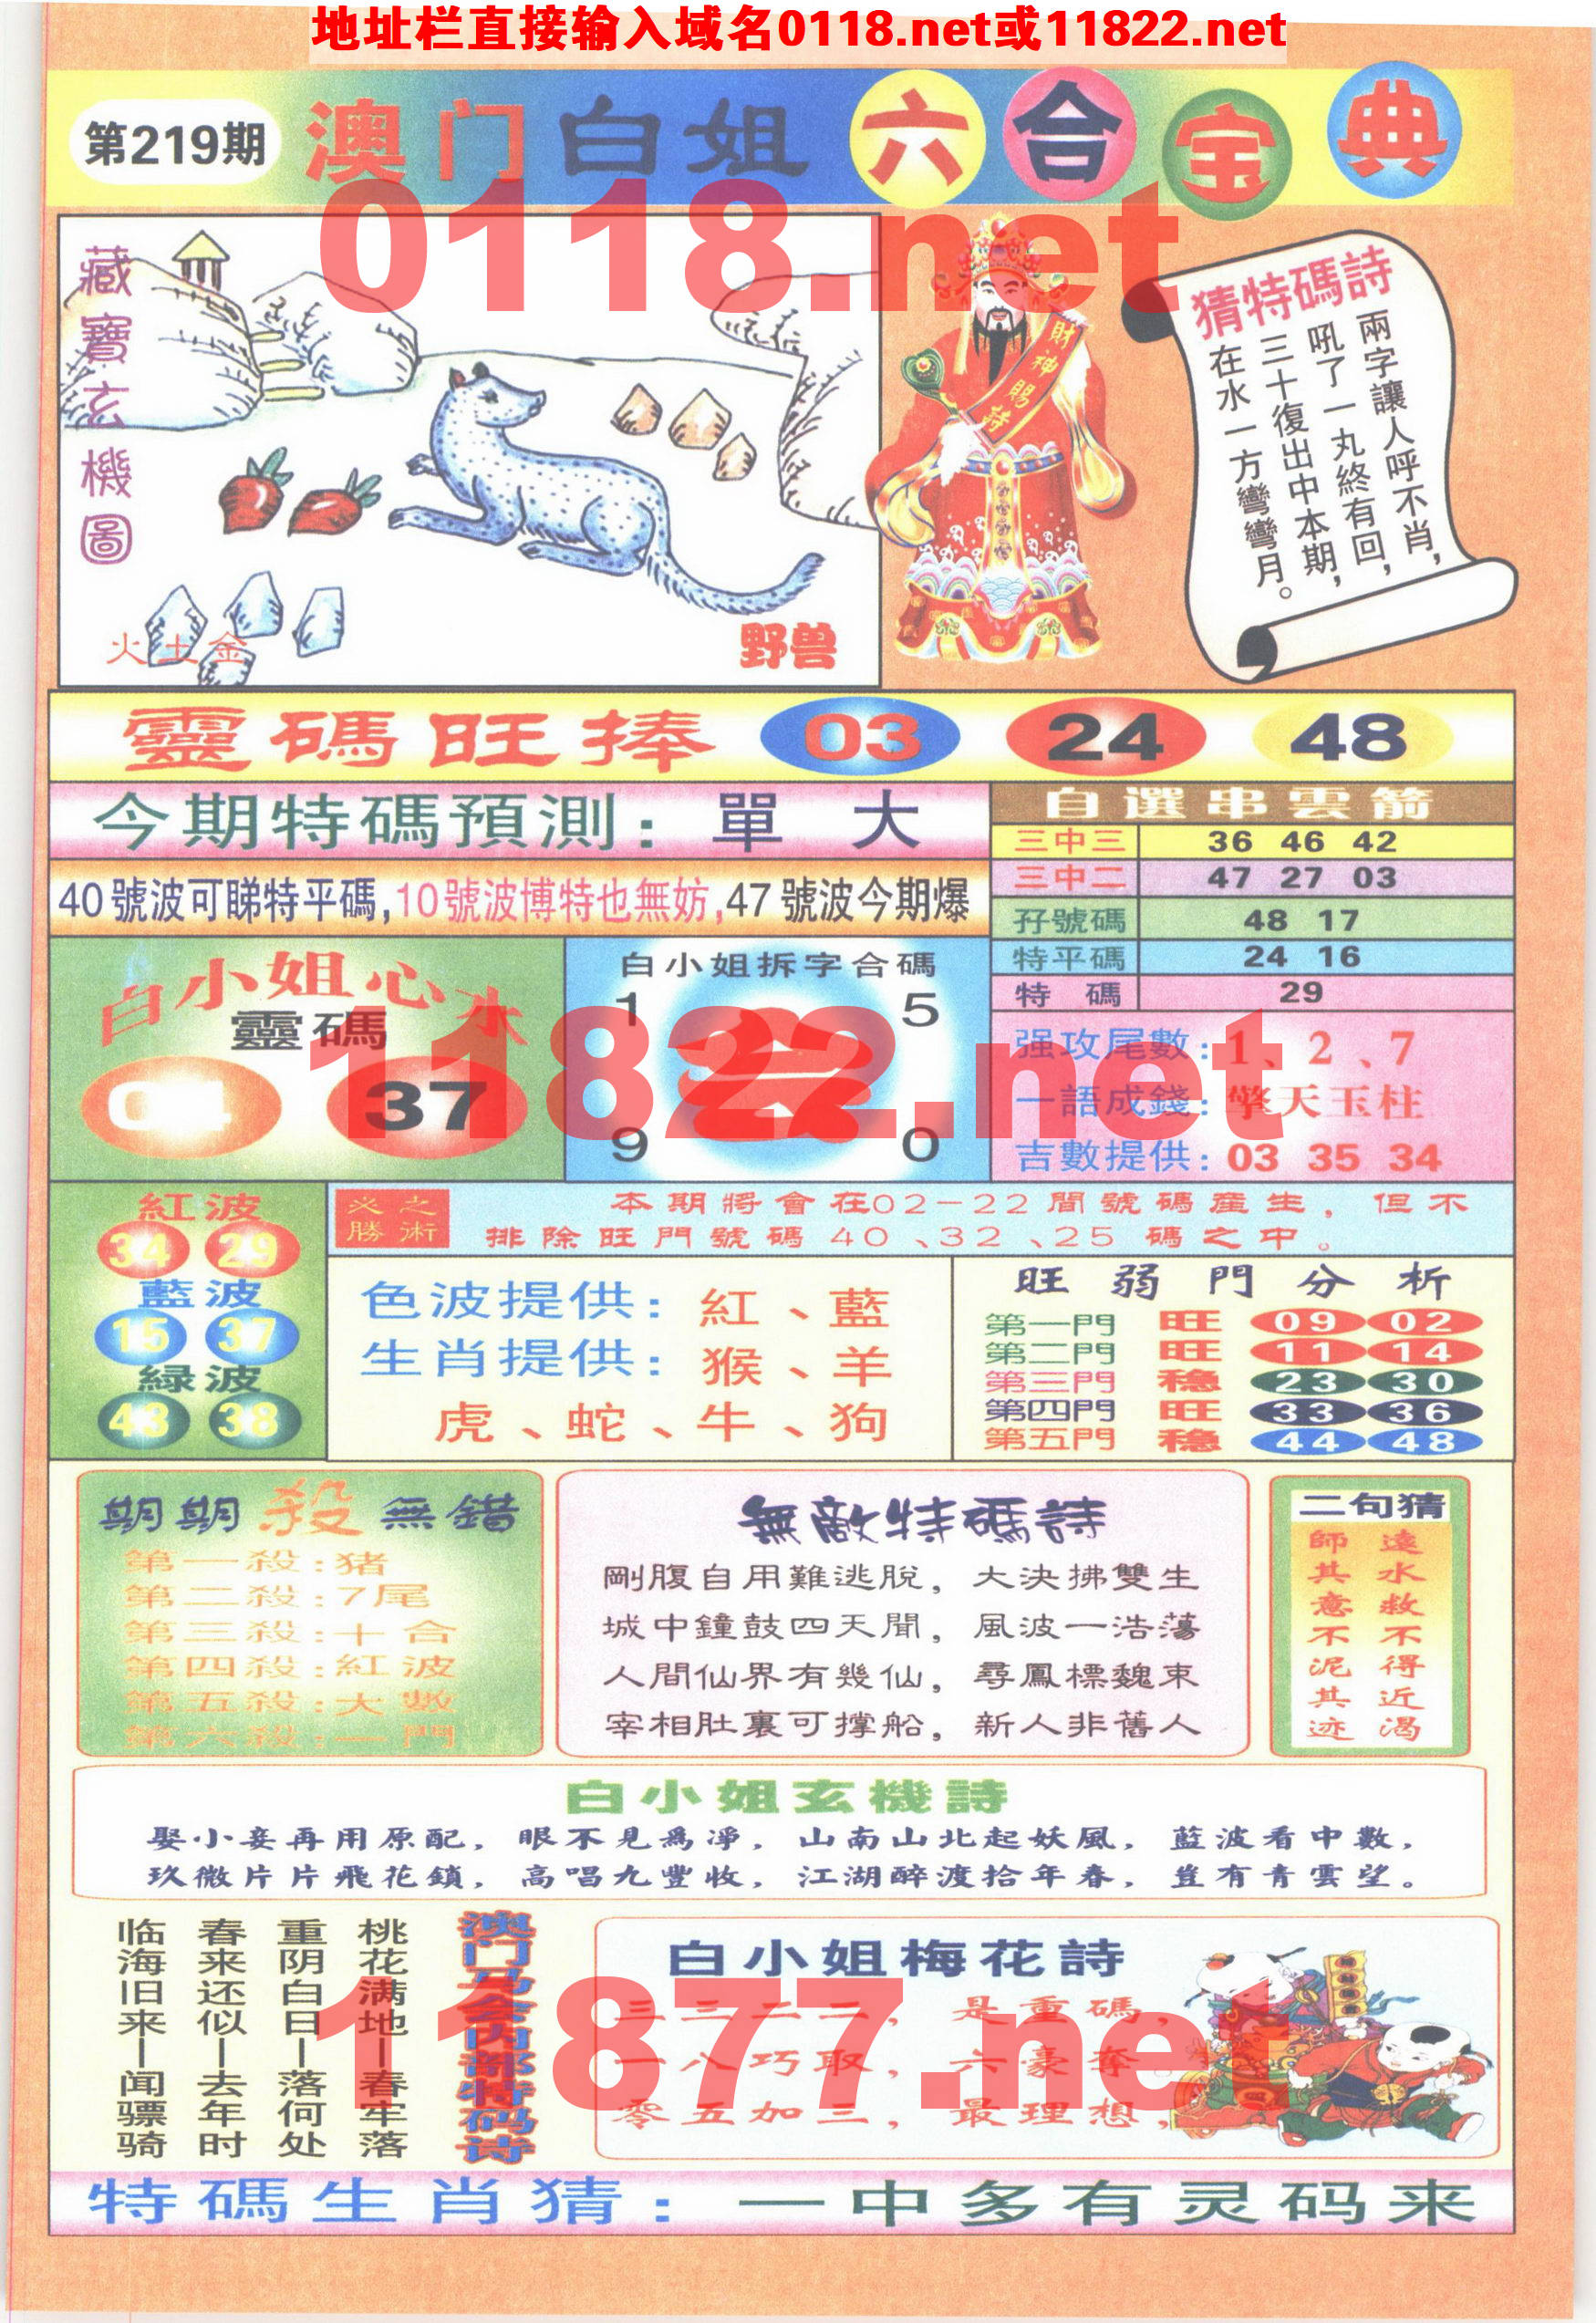 地址栏直接输入域名0118.net或11822.net
第219期
澳门白姐六合宝典
0118.net
藏寶玄機圖
火土金
野兽
財神賜詩
猜特碼詩
兩字讓人呼不肖，
吼了一丸終有回，
三十復出中本期，
在水一方彎彎月。
靈碼旺捧 03 24 48
今期特碼預測：單 大
40號波可睇特平碼,10號波博特也無妨,47號波今期爆
自選串雲箭
三中三 36 46 42
三中二 47 27 03
孖號碼 48 17
特平碼 24 16
特 碼 29
强攻尾數：1、2、7
一語成錢：擎天玉柱
吉數提供：03 35 34
白小姐心水
靈碼
04 37
白小姐拆字合碼
1 5
9 0
11822.net
紅波
34 29
藍波
15 37
緑波
43 38
必之勝術
本期將會在02-22間號碼産生，但不
排除旺門號碼40、32、25碼之中。
色波提供：紅、藍
生肖提供：猴、羊
虎、蛇、牛、狗
旺弱門分析
第一門 旺 09 02
第二門 旺 11 14
第三門 稳 23 30
第四門 旺 33 36
第五門 稳 44 48
期期殺無錯
第一殺：猪
第二殺：7尾
第三殺：十合
第四殺：紅波
第五殺：大數
第六殺：一門
無敵特碼詩
剛腹自用難逃脫，大決拂雙生
城中鐘鼓四天聞，風波一浩蕩
人間仙界有幾仙，尋鳳標魏束
宰相肚裏可撑船，新人非舊人
二句猜
遠水救不得近渴
師其意不泥其迹
白小姐玄機詩
娶小妾再用原配，眼不見爲淨，山南山北起妖風，藍波看中數，
玖微片片飛花鎖，高唱九豐收，江湖醉渡拾年春，豈有青雲望。
澳门马会内部特码诗
桃花满地—春牢落
重阴白日—落何处
春来还似—去年时
临海旧来—闻骠骑
白小姐梅花詩
三三二二，是重碼，
一八巧取，六豪奪，
零五加三，最理想，
11877.net
特碼生肖猜：一中多有灵码来